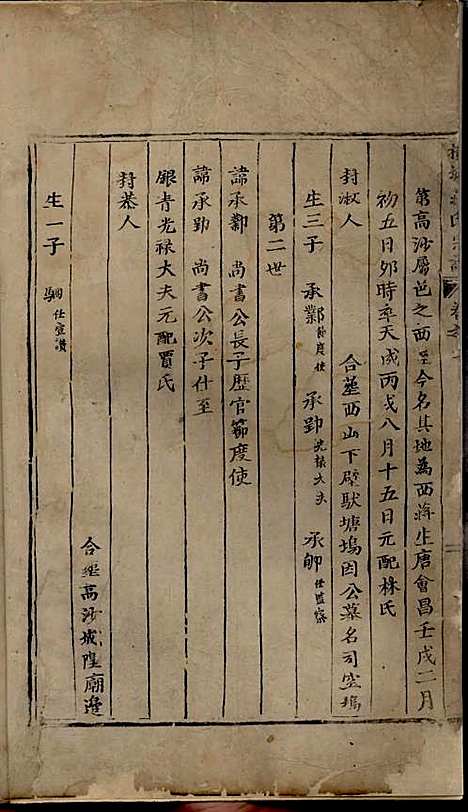 第高沙屬邑之西至今名其地為西蔣生唐會昌壬戌二月
初五日夘時卒天成丙戌八月十五日元配林氏
封淑人 合塟西山下壁馱塘塢因公墓名司空塢
生三子 承鄴節度使 承勛光禄大夫 承卿任監察
第二世
諱承鄴 尚書公長子歷官節度使
諱承勛 尚書公次子仕至
銀青光禄大夫元配賈氏
封恭人 合塟高沙城隍廟邉
生一子 駉任宣讚